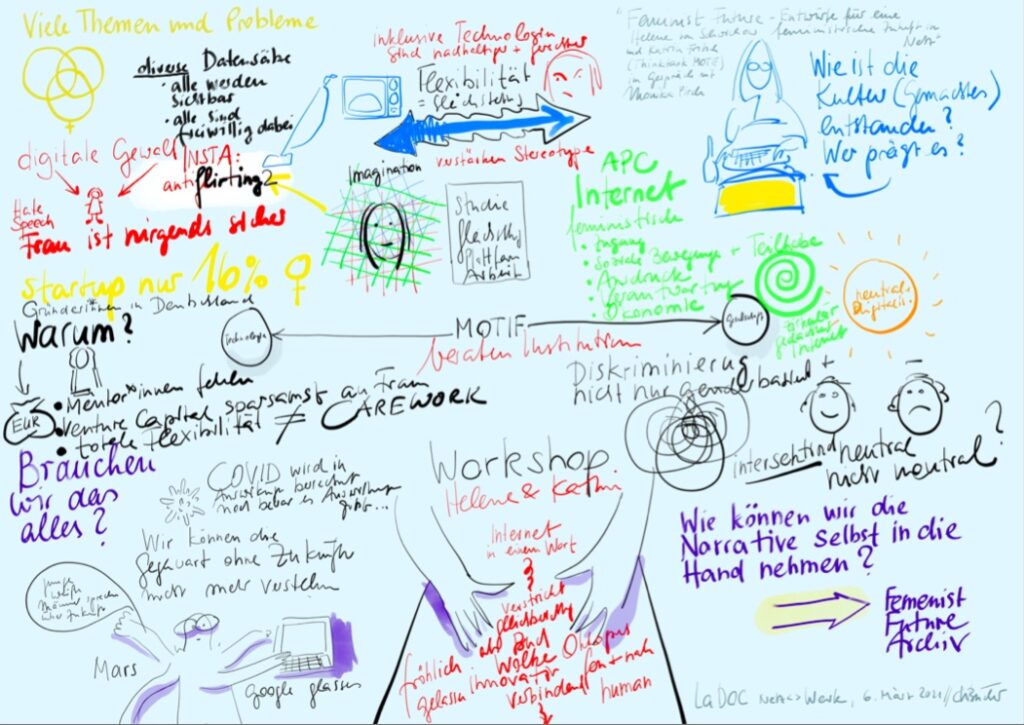 Viele Themen und Probleme
diverse Datensätze
• alle werden
sichtbar
• alle sind
freiwillig dabei
digitale Gewalt
INSTA:
antiflirting2
Hate
Speech
Frau ist nirgends sicher
startup nur 16% ♀
Gründer*innen in Deutschland
Warum?
EUR
• Mentor*innen fehlen
• Venture Capital sparsamst an Frau
• totale Flexibilität ≠ CAREWORK
Brauchen
wir das
alles?
inklusive Technologien
sind nachhaltiger + gerechter
Flexibilität
= Gleichstellung
verstärken Stereotype
Imagination
Studie
Plattform
Arbeit
Technologie
MOTIF
beraten Institution
Gesellschaft
Feminist Future - Entwürfe für eine
Helene von Schwichow feministische Zukunft im
und Katrin Fritsch Netz
(Thinktank MOTIF)
im Gespräch mit
Monika
Wie ist die
Kultur (gemachten)
entstanden?
Wer prägt es?
APC
Internet
feministisch
• Zugang
• Soziale Bewegungen + Teilhabe
• Ausdruck
• Verantwortung
• Ökonomie
Internet
neutral.
Digitali.
Diskriminierung
nicht nur genderbasiert +
neutral
nicht neutral?
COVID wird in
noch bevor es Auswirkungen
gibt...
Wir können die
gegenwart ohne Zukünfte
nicht mehr verstehen
Männer sprechen
über Zukunft
Mars
google glasses
Workshop
Helene & Katrin
Internet
in einem Wort
verstrickt
gleichberechtigt
als Bad
Wolke Oktopus
fröhlich Innovativ fern + nah
gelassen verbindend human
Wie können wir die
Narrative selbst in die
Hand nehmen?
Femenist
Future
Archiv
LaDOC Netz<>Werk, 6. März 2021//